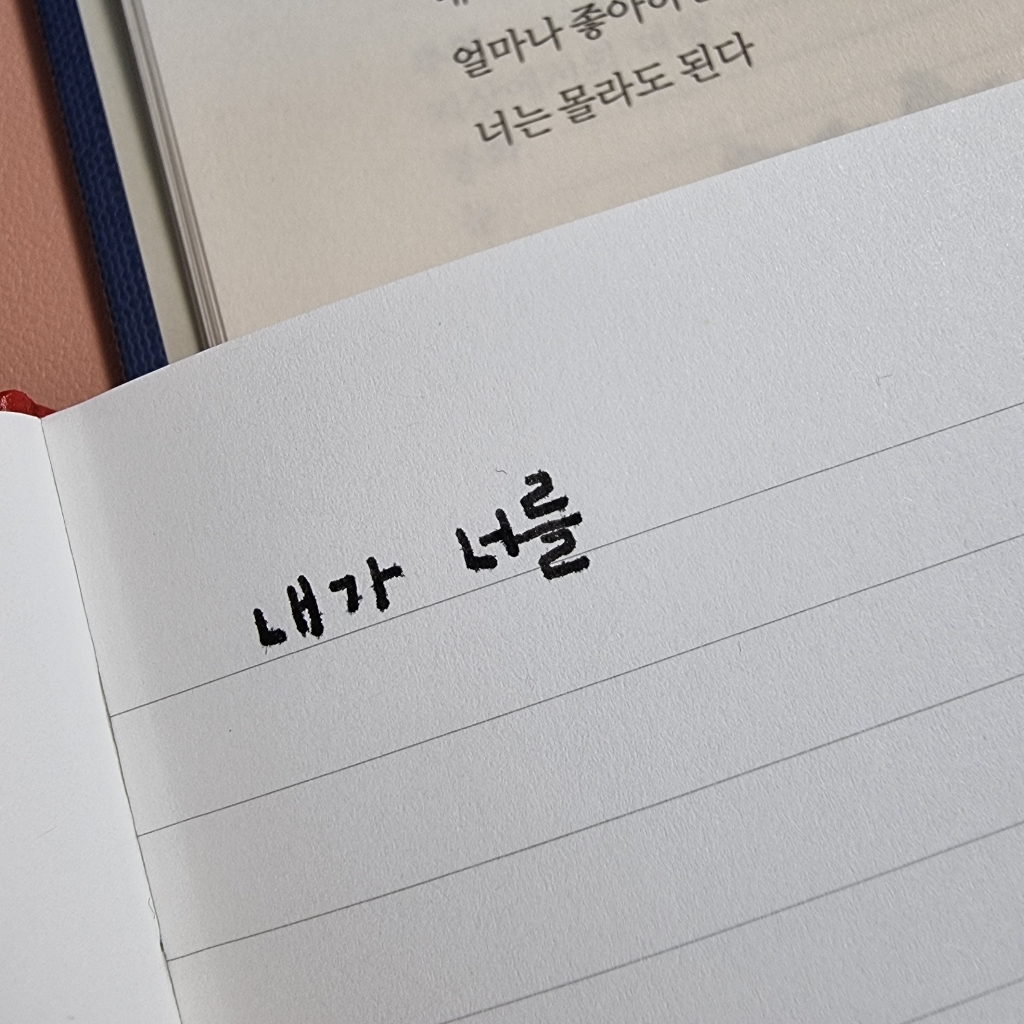 얼마나
너는 몰라도 된다
내가 너를